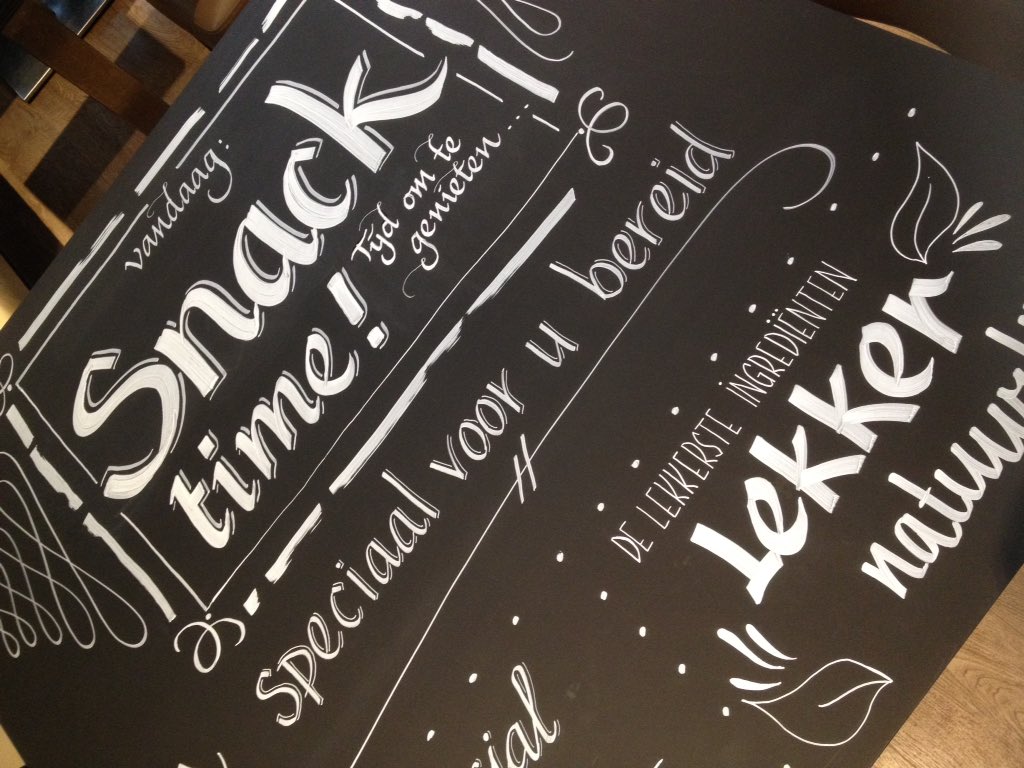 vandaag:
Snack
time!
Tijd om te
genieten...
speciaal voor u bereid
DE LEKKERSTE INGREDIËNTEN
Lekker